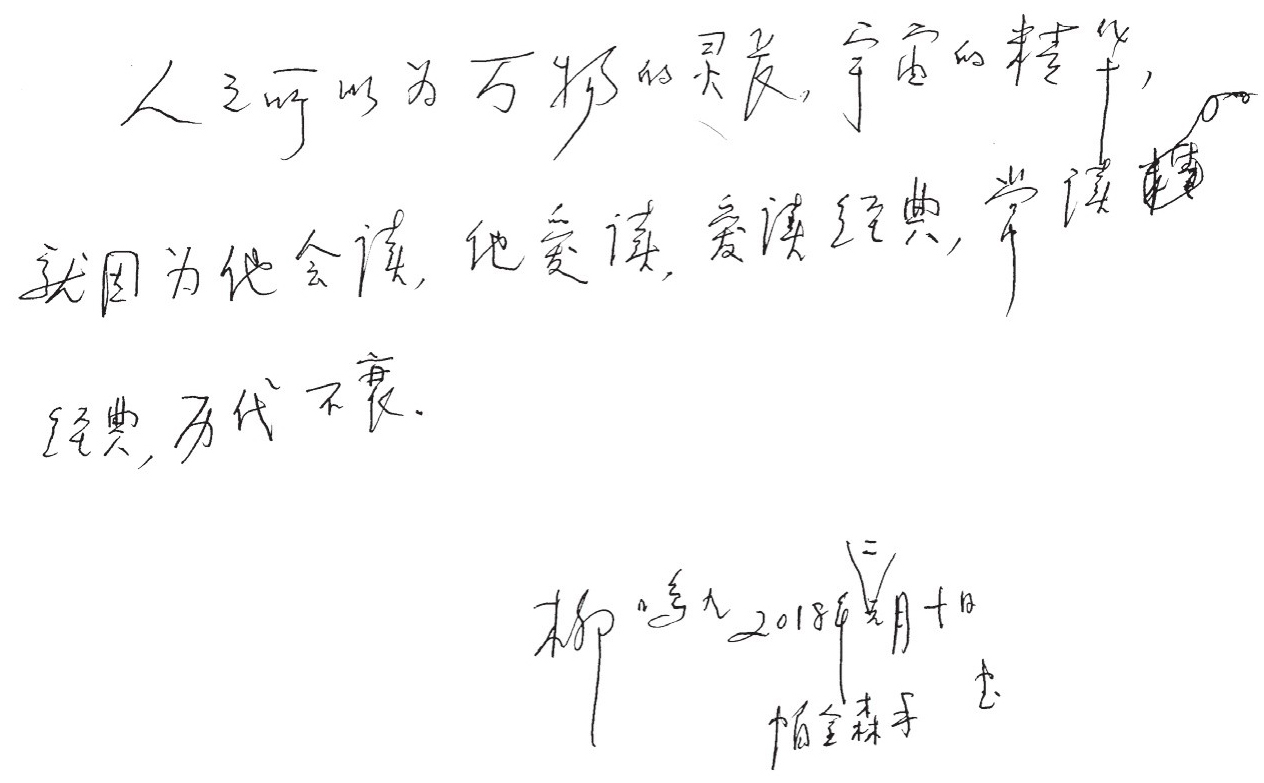 人之可以为万物的灵长,宇宙的精华,
就因为他会读,他爱读,爱读经典,常读
经典,历代不衰.
柳鸣九2018年二月十日
帕金森手 书